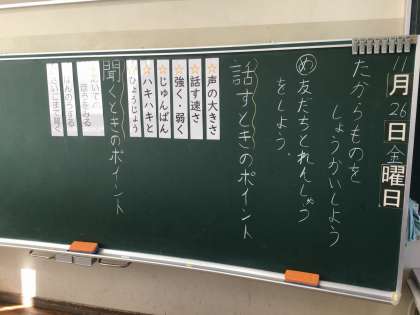 11月26日金曜日
たからものを
しょうかいしよう
め 友だちとれんしゅう
をしよう。
話すときのポイント
☆声の大きさ
☆話す速さ
☆強く・弱く
☆じゅんばん
☆ハキハキと
ひょうじょう
聞くときのポイント
さいごまで聞く